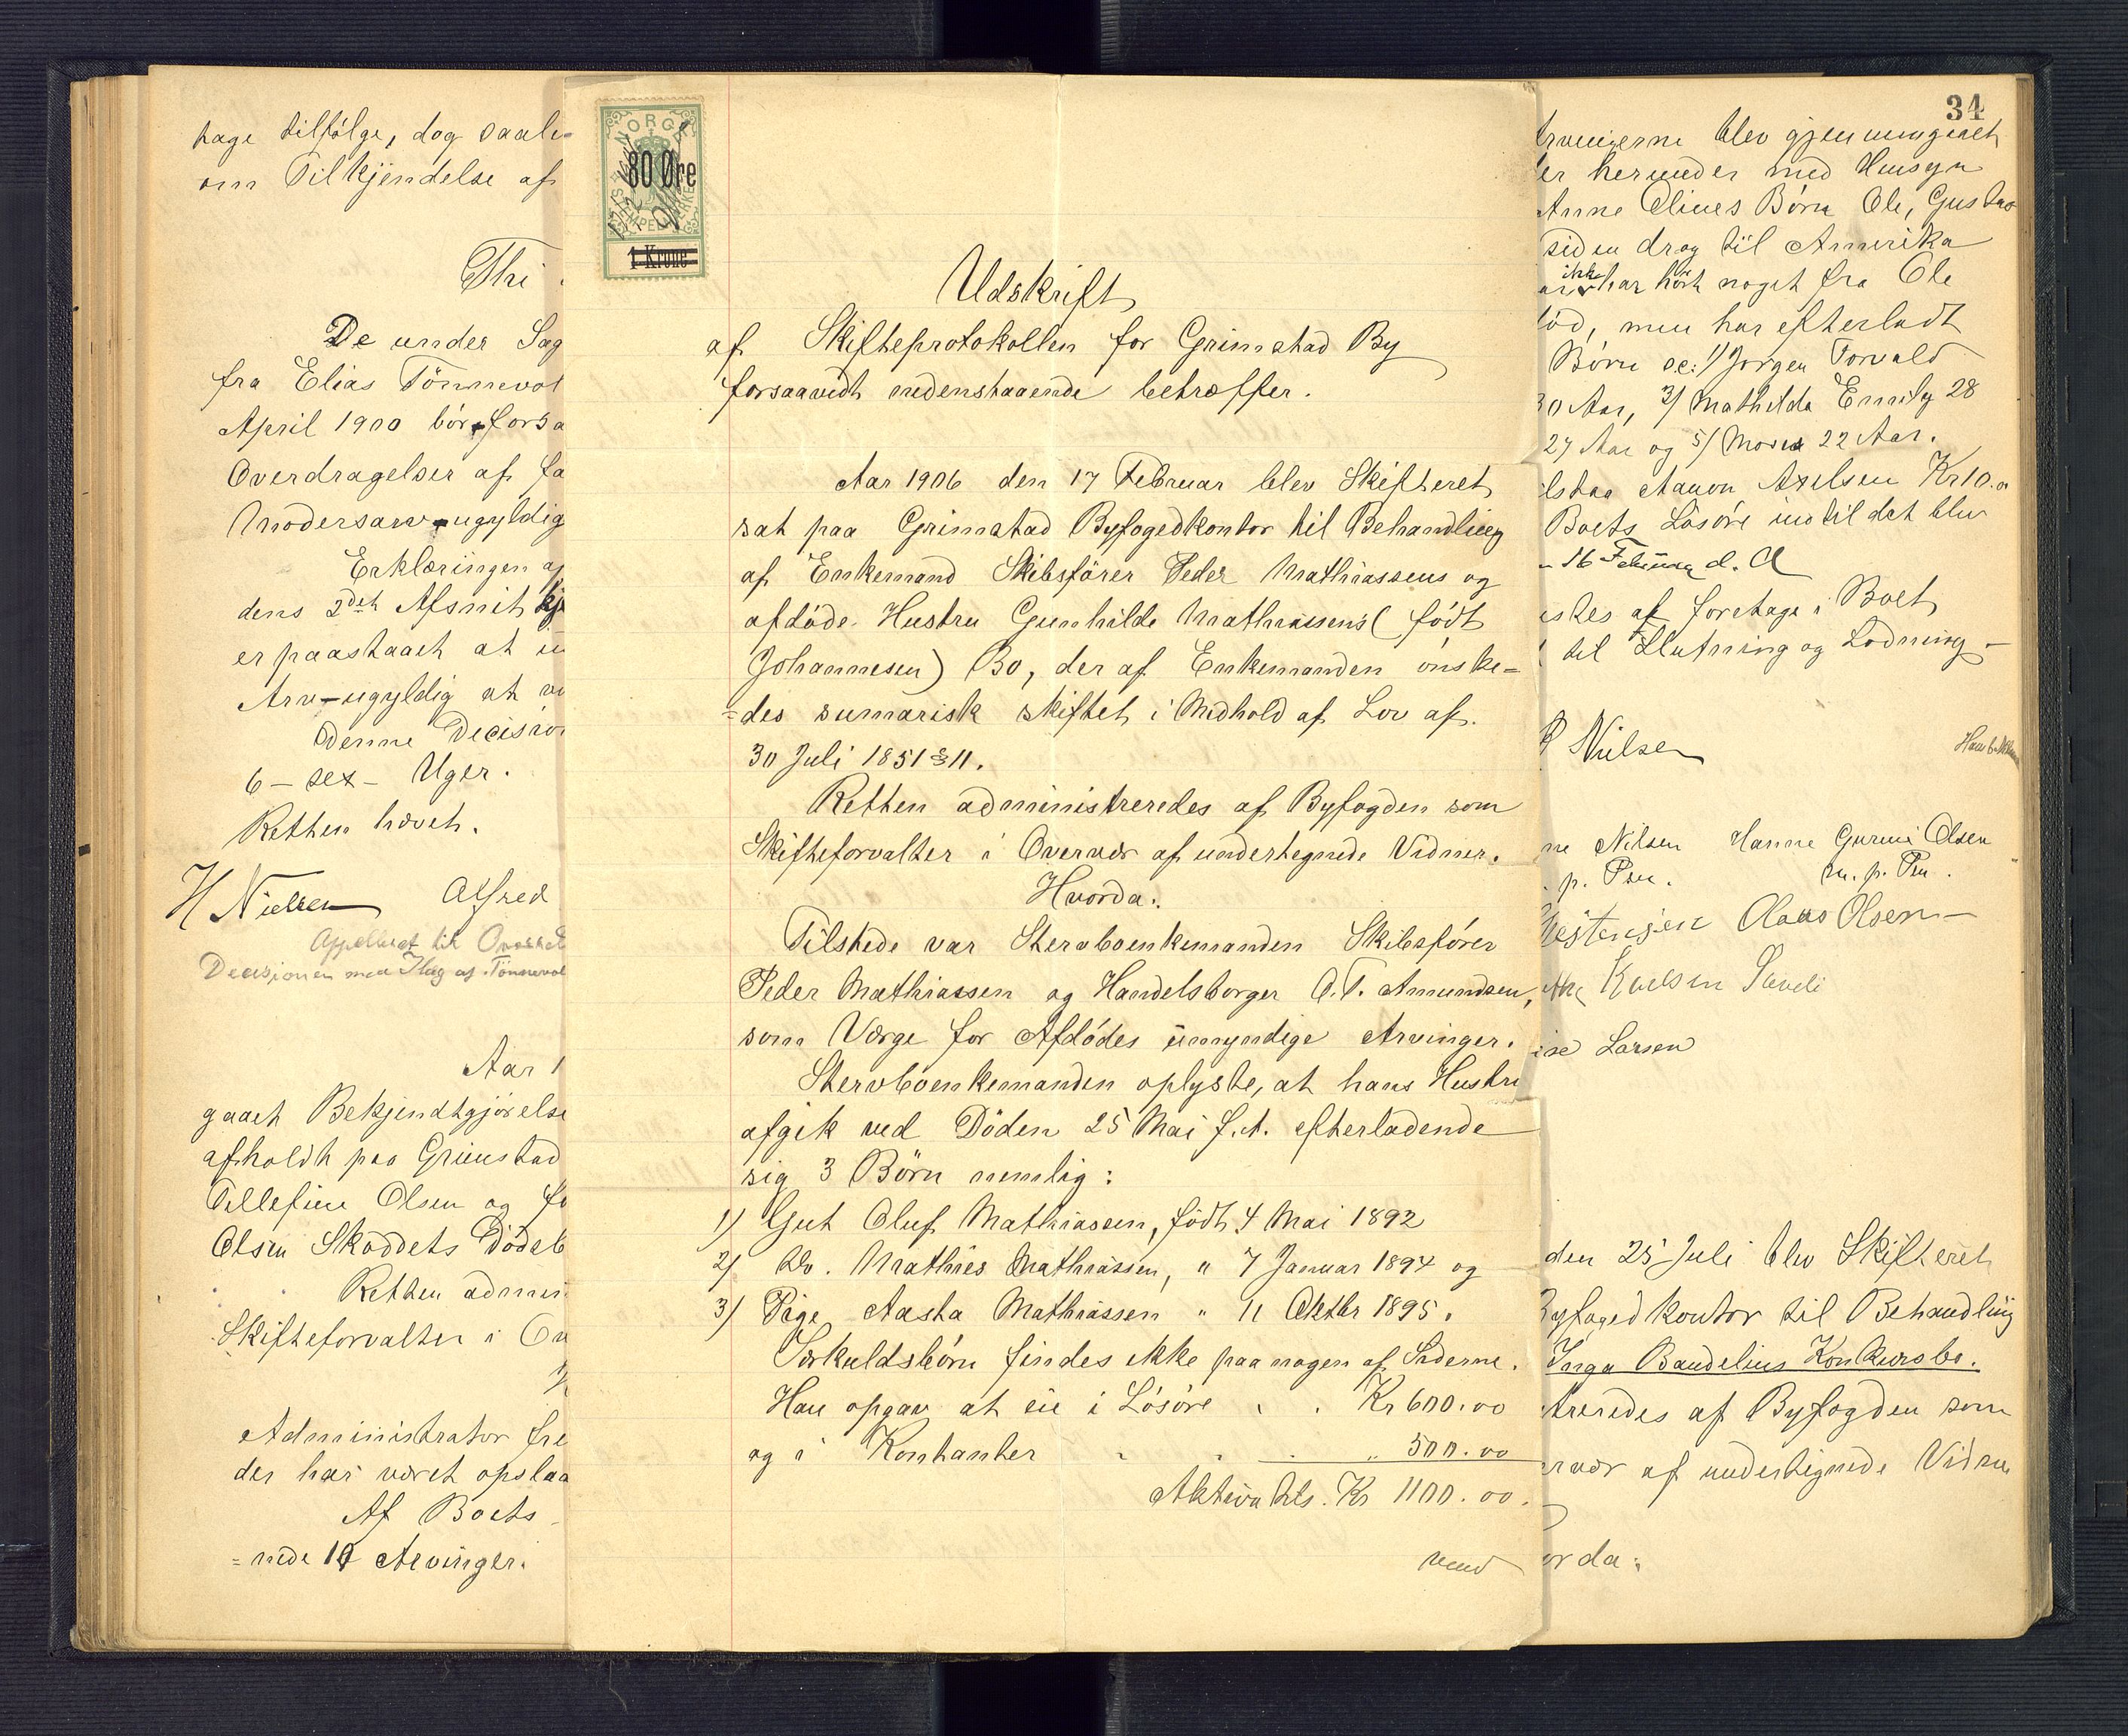 tage tilfølge, dog saale-
om Tilkjendelse af
Thi
De under Sag
fra Elias Tönnevol
April 1900 bör forsa
Overdragelser af fa
Modersarv ugyldig
Erklæringen a
dens 2det Afsnit kj
er paastaaet at
Arv - ugyldig at
Denne Decision
6 - sex - Uger.
Retten hævet.
H Nielsen Alfred
Appelleret til Overret
Decisionen med Tlæg af Tönnevol
Aar 1
gaaet Bekjendtgjörelse
afholdt paa Grimstad
Tellefine Olsen og f
Olsen Skaddets Dödsb
Retten admin
Skifteforvalter i Ov
Administrator fre
der har været opslaa
Af Boets
=nede 10 Arvinger.
NORGE
80 Øre
1 Krone
Udskrift
af Skifteprotokollen for Grimstad By
forsaavidt nedenstaaende betræffer.
Aar 1906 den 17 Februar blev Skifteret
sat paa Grimstad Byfogedkontor til Behandling
af Enkemand Skibsförer Peder Mathiassens og
afdöde Hustru Gunhilde Mathiassens (födt
Johannesen) Bo, der af Enkemanden önske=
=des sumarisk skiftet i Medhold af Lov af
30 Juli 1851 § 11.
Retten administreredes af Byfogden som
Skifteforvalter i Overvær af undertegnede Vidner.
Hvorda:
Tilstede var Stervboenkemanden Skibsförer
Peder Mathiassen og Handelsborger O.T. Amundsen,
som Værge for Afdödes umyndige Arvinger.
Stervboenkemanden oplyste, at hans Hustru
afgik ved Döden 25 Mai f.A. efterladende
sig 3 Börn nemlig:
1) Gut Oluf Mathiassen, födt 4 Mai 1892
2) Do. Mathies Mathiassen, " 7 Januar 1894 og
3) Pige Aasta Mathiassen " 11 Oktbr 1895.
Særkuldsbörn findes ikke paa nogen af Siderne.
Han opgav at eie i Lösöre . . Kr 600.00
og i Kontanter . . . " 500.00
Aktiva tils. Kr 1100.00.
vend
34
Arvingerne blev gjennemgaaet
er herunder med Hensyn
Anne Elines Börn Ole, Gustav
siden drog til Amerika
ikke har hört noget fra Ole
död, men har efterladt
Börn sc: 1) Jørgen Torvald
30 Aar, 3) Mathilda Emily 28
27 Aar og 5) 22 Aar.
Aanon Axelsen Kr 10.
Boets Lösöre indtil det blev
16 Februar d. A
af foretage i Boet
til Slutning og Lodning -
Nielsen
ne Nilsen Hanne Gurine Olsen
p. Pen. m. p. Pen.
Olaus Olsen
Larsen
den 25 Juli blev Skifteret
Byfogedkontor til Behandling
Inga Baudelius Konkursbo.
treredes af Byfogden som
ervær af undertegnede Vidne
orda: